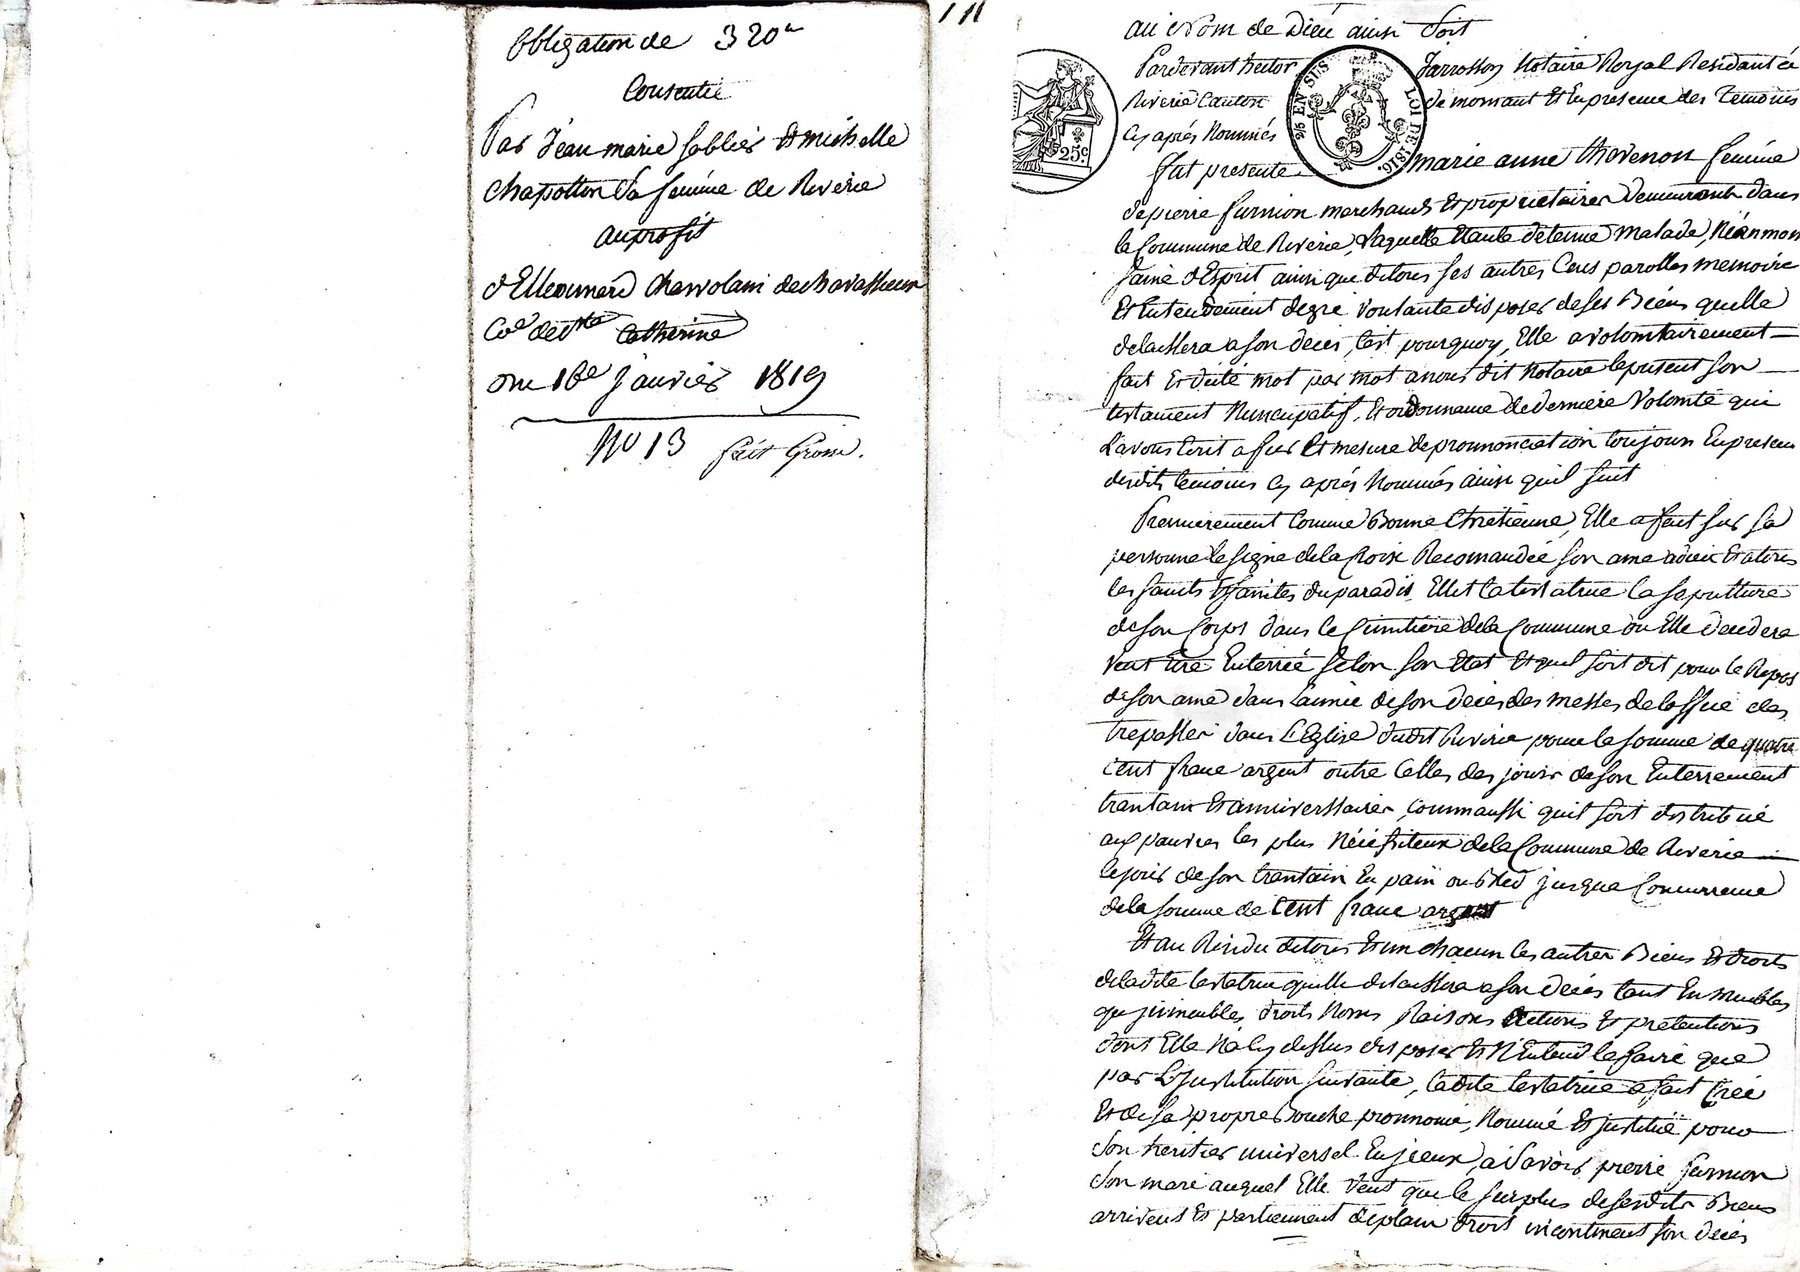 Obligation de 320"
Consentie
Par Jean marie Sablier Et michelle
Chapotton Sa femme de Riverie
au profit
d'Elleonnard Chervolain de chavassieux
Coe de Ste Catherine
Du 16e Janvier 1819
No 13 fait Grosse.
au Nom de Dieu ainsi Soit
Pardevant hector Jarrosson Notaire Royal Residant a
Riverie Canton de mornant Et En presence des Temoins
Cy après Nommés
fut presente marie anne thevenon femme
de pierre furnion marchand Et proprietaire Demeurante dans
la Commune de Riverie, Laquelle Etante detenue malade, Néanmoin
Saine d'Esprit ainsi que de tous Ses autres Cens parolles memoire
Et Entendement de gré voulante disposer de Ses Biens quelle
delaissera a Son deces, C'est pourquoy, Elle a volontairement
fait Et dicté mot par mot a nous dit Notaire le present Son
testament Nuncupatif, Et ordonnance de derniere Volonté qui
L'avons Ecrit a fur Et mesure de pronnonciation toujours En presence
desdits temoins Cy après Nommés ainsi quil Suit
Premierement Comme Bonne Chretienne, Elle a fait Sur Sa
personne le Signe de la Croix Recomandée Son ame a dieu Et a tous
les Saints Et Saintes du paradis. Ellit la testatrice la Sepulture
de Son Corps dans le Cimetiere de la Commune ou Elle decedera
Veut Etre Enterrée Selon Son Etat Et quil Soit dit pour le Repos
de Son ame dans L'année de Son deces des messes de loffice des
trepasser dans L'Eglise dudit Riverie pour la Somme de quatre
Cent franc argent outre Celles des jours de Son Enterrement
trantain Et anniverssaire, Comm aussi quil Soit distribué
aux pauvres les plus Nécéssiteux de la Commune de Riverie
le jour de Son trantain En pain ou bled jusque Concurrence
de la Somme de Cent franc argent
Et au Residu de tous Et un chacun les autres Biens Et droits
de ladite testatrice quelle delaissera a Son deces tant En meubles
qu'jmmeubles, droits Noms Raisons actions Et pretentions
dont Elle N'a Cy dessus disposer Et N'Entend le faire que
par L'Jnstitution Suivante, ladite testatrice a fait Créé
Et de Sa propre Bouche pronnoncé, Nommé Et jnstitué pour
Son heritier universel En jceux, a Savoir pierre furnion
Son mari auquel Elle Veut que le Surplus de Sesdits Biens
arrivent Et partiennent de plain droit incontinent Son deces
25c
2/5 EN SUS
LOI DE 1816